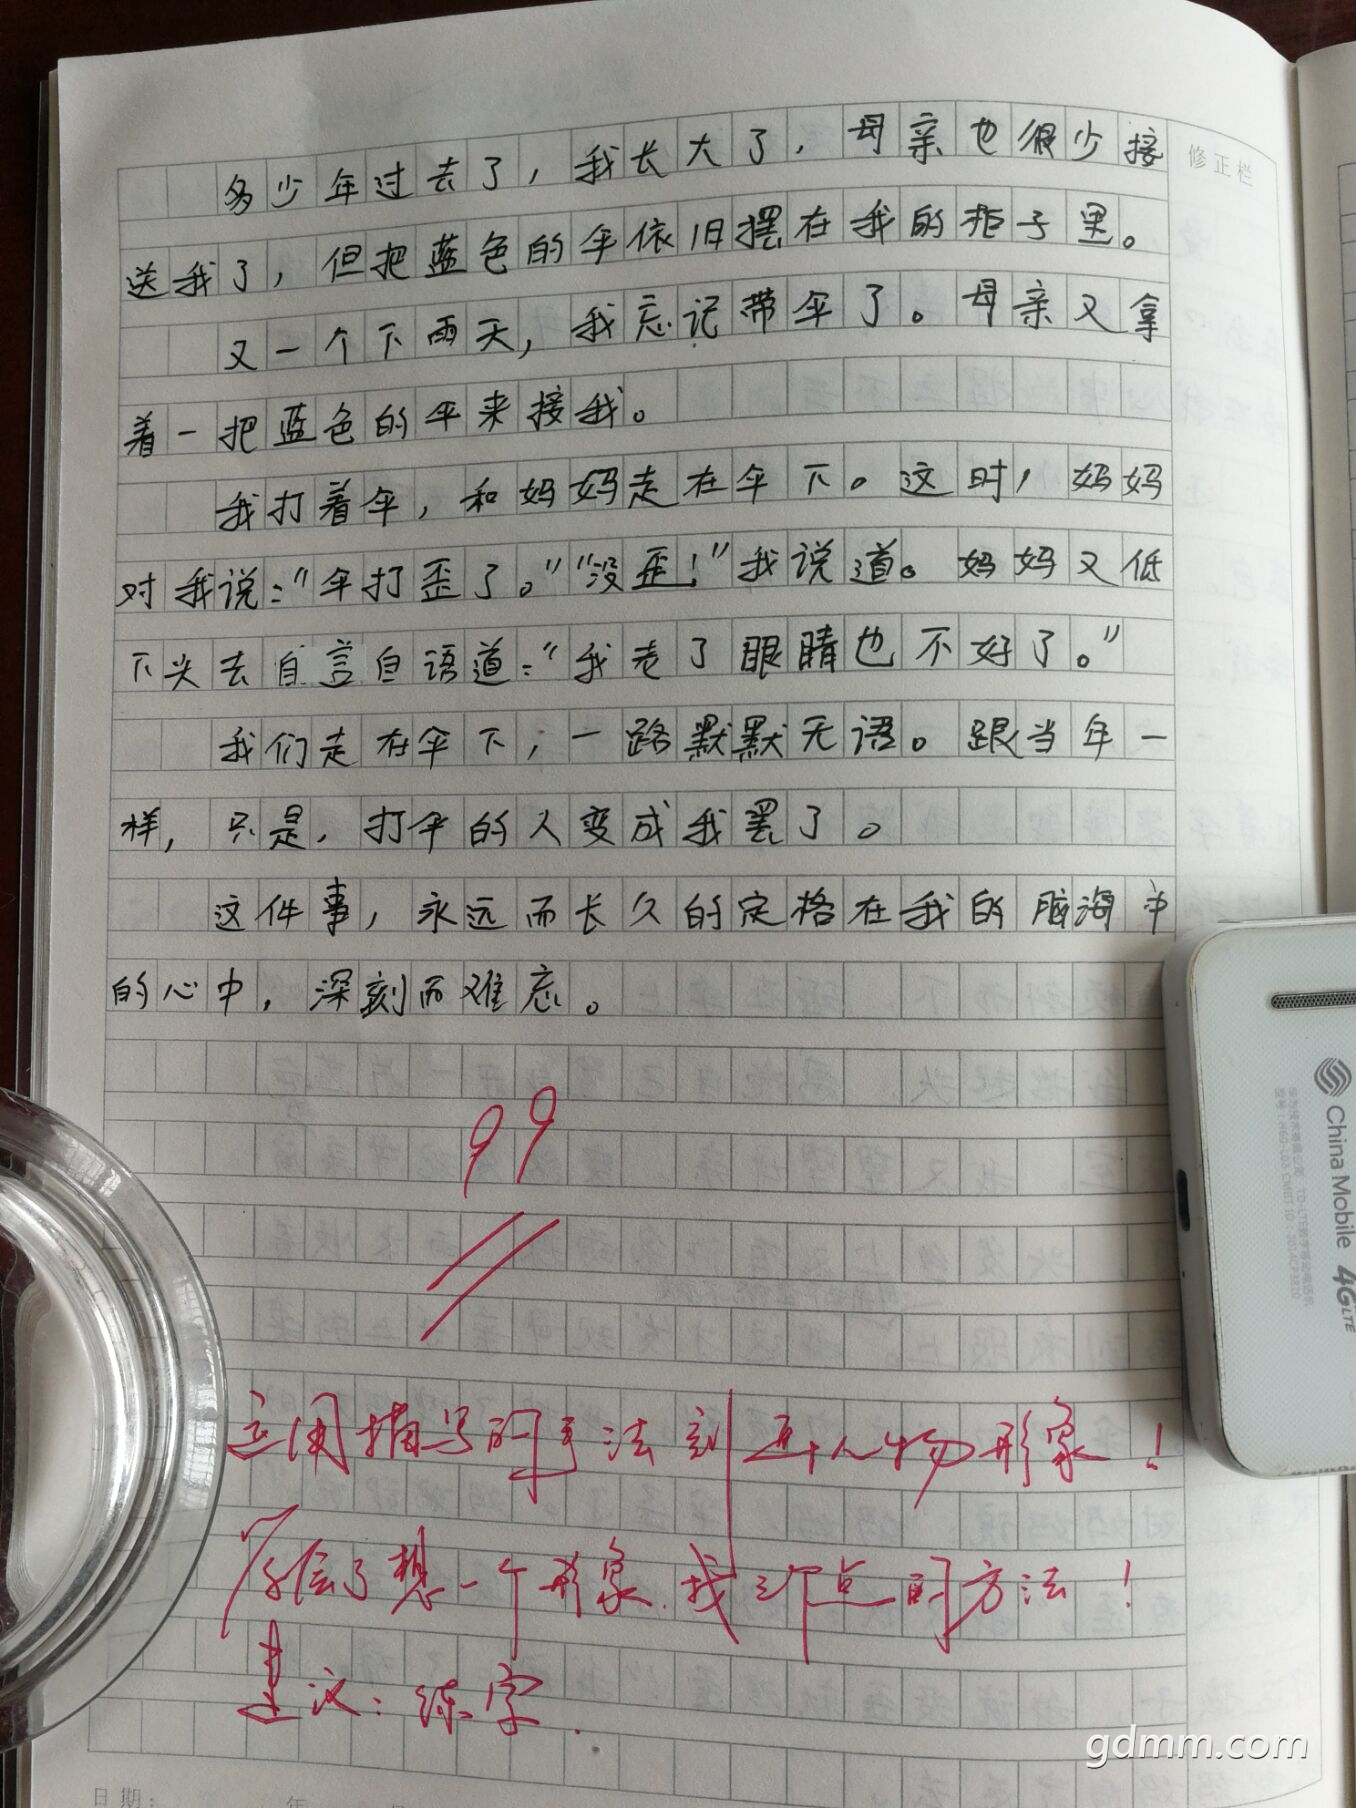 多少年过去了，我长大了，母亲也很少接
修正栏
送我了，但把蓝色的伞依旧摆在我的柜子里。
又一个下雨天，我忘记带伞了。母亲又拿
着一把蓝色的伞来接我。
我打着伞，和妈妈走在伞下。这时，妈妈
对我说：“伞打歪了。”“没歪！”我说道。妈妈又低
下头去自言自语道：“我老了眼睛也不好了。”
我们走在伞下，一路默默无语。跟当年一
样，只是，打伞的人变成我罢了。
这件事，永远而长久的定格在我的脑海中
的心中，深刻而难忘。
99
运用描写的手法刻画人物形象！
学会了想一个形象，找三个点的方法！
建议：练字.
China Mobile 4G LTE
日期：
年
gdmm.com